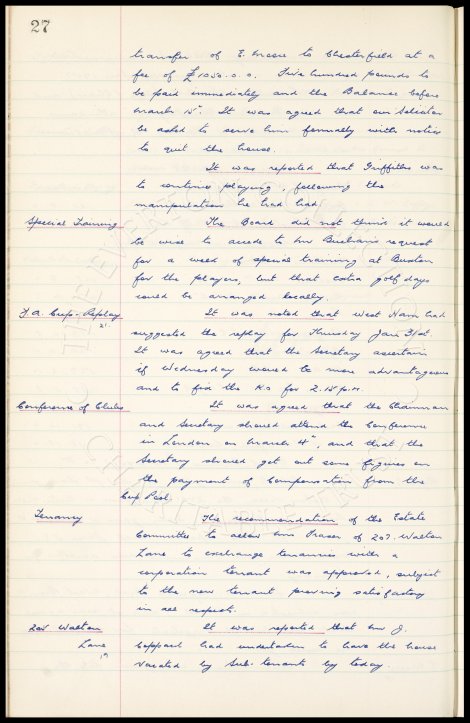 27
transfer of E. Moore to Chesterfield at a
fee of £1050.0.0. Five hundred pounds to
be paid immediately and the Balance before
March 15th. It was agreed that our Solicitor
be asked to serve him formally with notice
to quit the house.
It was reported that Griffiths was
to continue playing, following the
manipulation he had had.
Special Training
The Board did not think it would
be wise to accede to Mr Buchan's request
for a week of special training at Buxton
for the players, but that extra golf days
could be arranged locally.
F.A. Cup-Replay
It was noted that West Ham had
suggested the replay for Thursday Jan 31st.
It was agreed that the Secretary ascertain
if Wednesday would be more advantageous
and to fix the KO for 2.15 p.m.
Conference of Clubs
It was agreed that the Chairman
and Secretary should attend the Conference
in London on March 4th, and that the
Secretary should get out some figures on
the payment of Compensation from the
Cup Pool.
Tenancy
The recommendation of the Estate
Committee to allow Mr Fraser of 207. Walton
Lane to exchange tenancies with a
corporation tenant was approved, subject
to the new tenant proving satisfactory
in all respects.
Walton
Lane
It was reported that Mr J.
had undertaken to have the house
vacated by Sub-tenants by today.